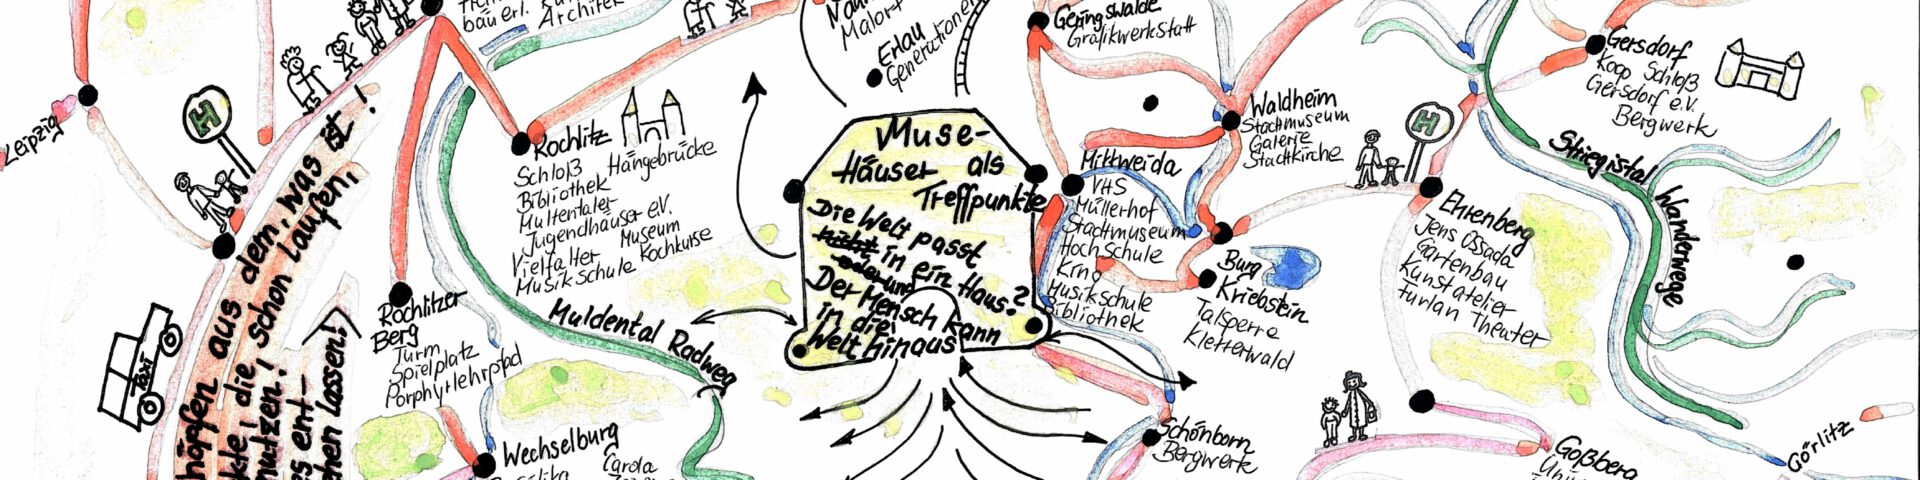 Leipzig
höpfen aus dem, was ist!
kte, die schon laufen,
nutzen!
s ent-
hen lassen!
Taxi
H
bäuerl.
Architek
Rochlitz
Schloß Hängebrücke
Bibliothek
Multentaler
Jugendhäuser e.V.
Vielfalter Museum
Musikschule Kochkurse
Rochlitzer
Berg
Turm
Spielplatz
Porphyrlehrpfad
Muldental Radweg
Wechselburg
Basilika
Carola
Malort
Erlau
Generationen
Muse-
Häuser als
Treffpunkte
Die Welt passt
nicht in ein Haus?
oder und
Der Mensch kann
in die
Welt hinaus
Geringswalde
Grafikwerkstatt
Mittweida
VHS
Müllerhof
Stadtmuseum
Hochschule
Kino
Musikschule
Bibliothek
Waldheim
Stadtmuseum
Galerie
Stadtkirche
Burg
Kriebstein
Talsperre
Kletterwald
Schönborn
Bergwerk
H
Ehrenberg
Jens Ossada
Gartenbau
Kunstatelier
Furlan Theater
Gersdorf
Koop Schloß
Gersdorf e.V.
Bergwerk
Striegistal Wanderwege
Goßberg
Görlitz